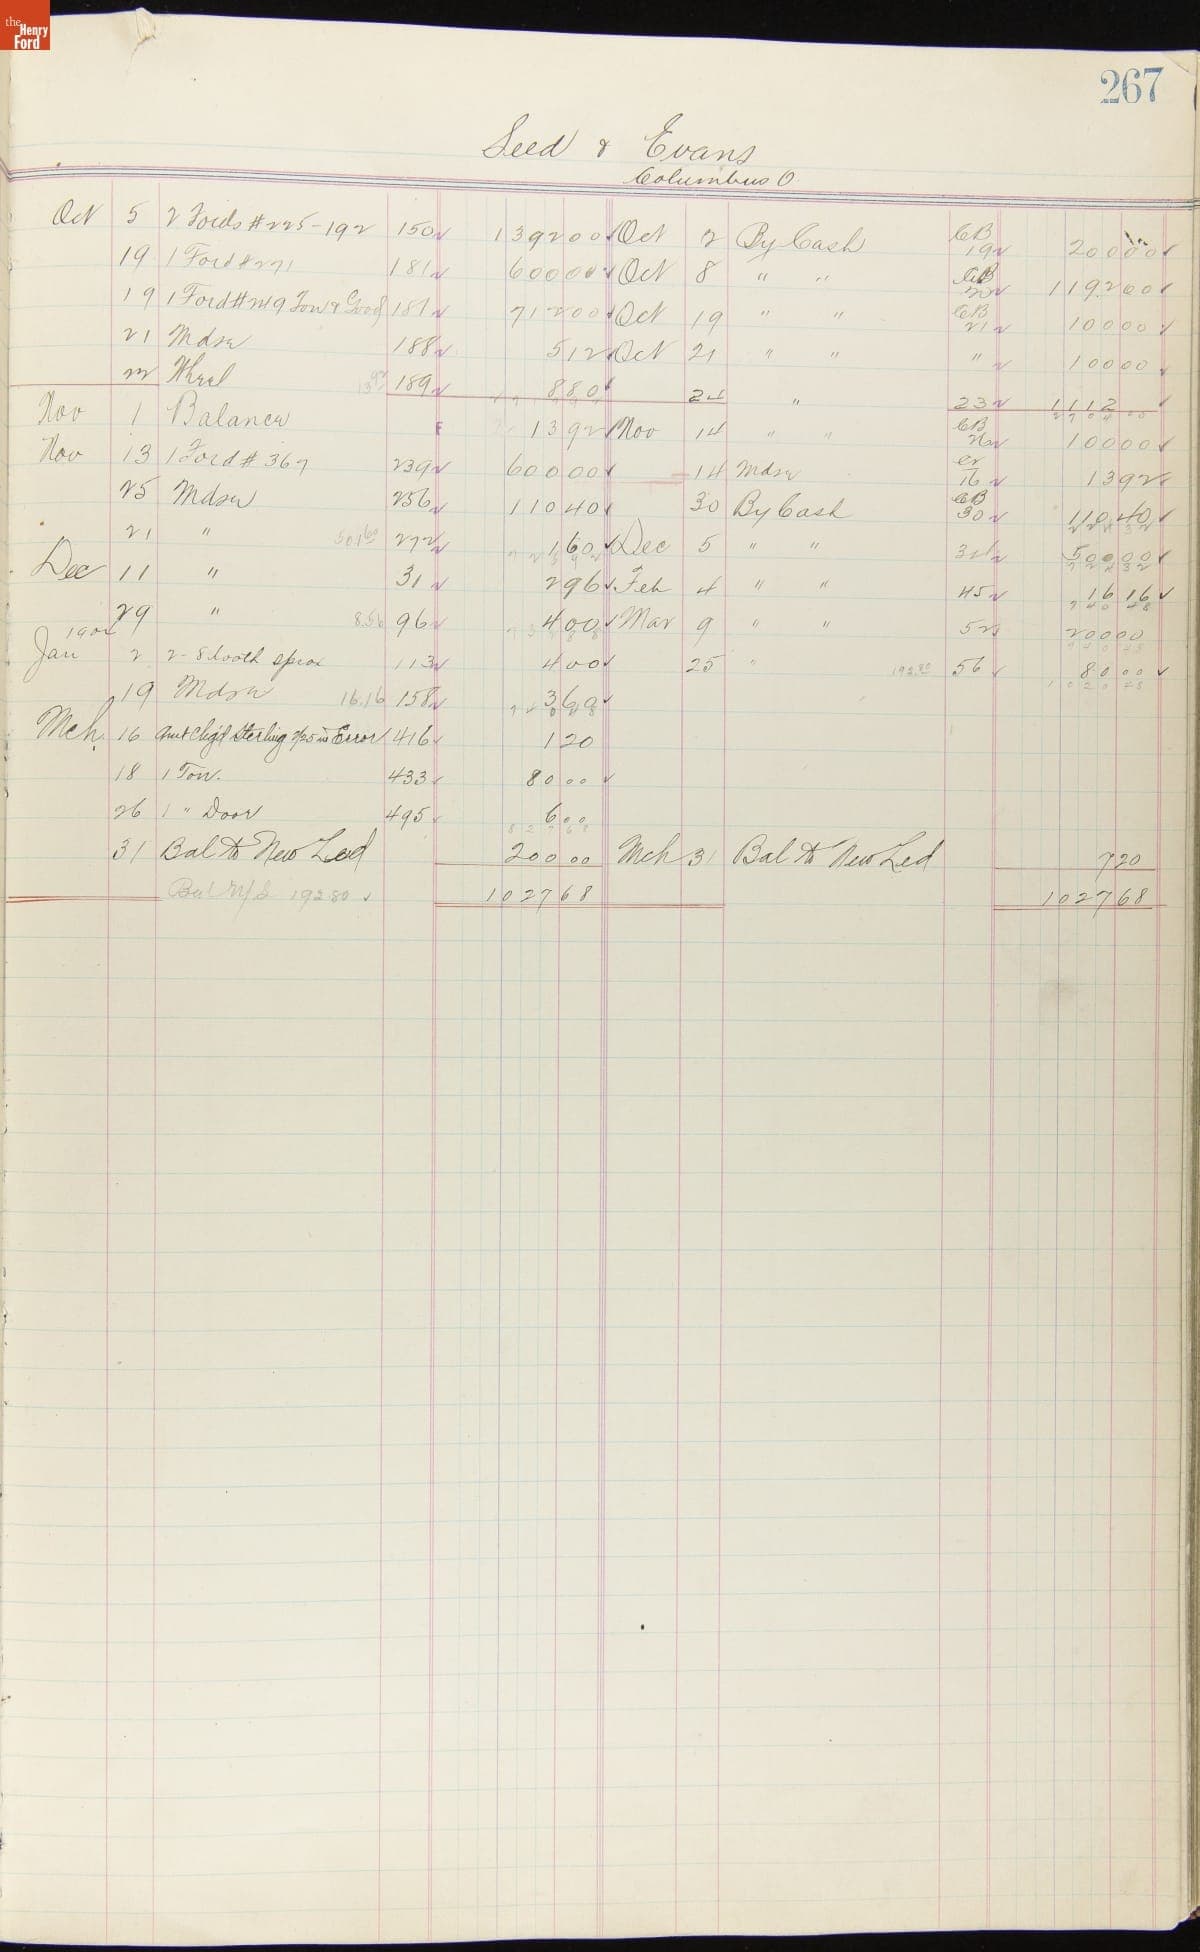 the Henry Ford
267
Seed & Evans
Columbus O.
Oct 5 2 Fords #225-192 150 1392 00 Oct 2 By Cash CB 19 200 00
19 1 Ford #271 181 600 00 Oct 8 " " CB 1192 00
19 1 Ford 181 712 00 Oct 19 " " CB 21 100 00
21 Mdse 188 5 12 Oct 21 " " " 100 00
22 Wheel 189 8 80 24 " 23 1112
Nov 1 Balance 13 92 Nov 14 " " CB 100 00
Nov 13 1 Ford #367 239 600 00 14 Mdse 16 13 92
25 Mdse 256 110 40 30 By Cash CB 30 110 40
21 " 272 1 60 Dec 5 " " 500 00
Dec 11 " 31 2 96 Feb 4 " " 45 16 16
29 " 8.56 96 4 00 Mar 9 " " 52 200 00
1904
Jan 2 2-8 tooth sproc 113 4 00 25 " 192.80 56 80 00
19 Mdse 16.16 158 3 60
Mch. 16 Amt Chg'd Sterling 2/25 in Error 416 1 20
18 1 Ton. 433 80 00
26 1 " Door 495 6 00
31 Bal to New Led 200 00 Mch 31 Bal to New Led 7 20
192 80 1027 68 1027 68